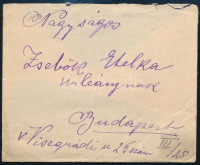 Nagyságos
Zsebők Etelka
urleánynak
Budapest
V Visegrádi u 26 szám
III/28